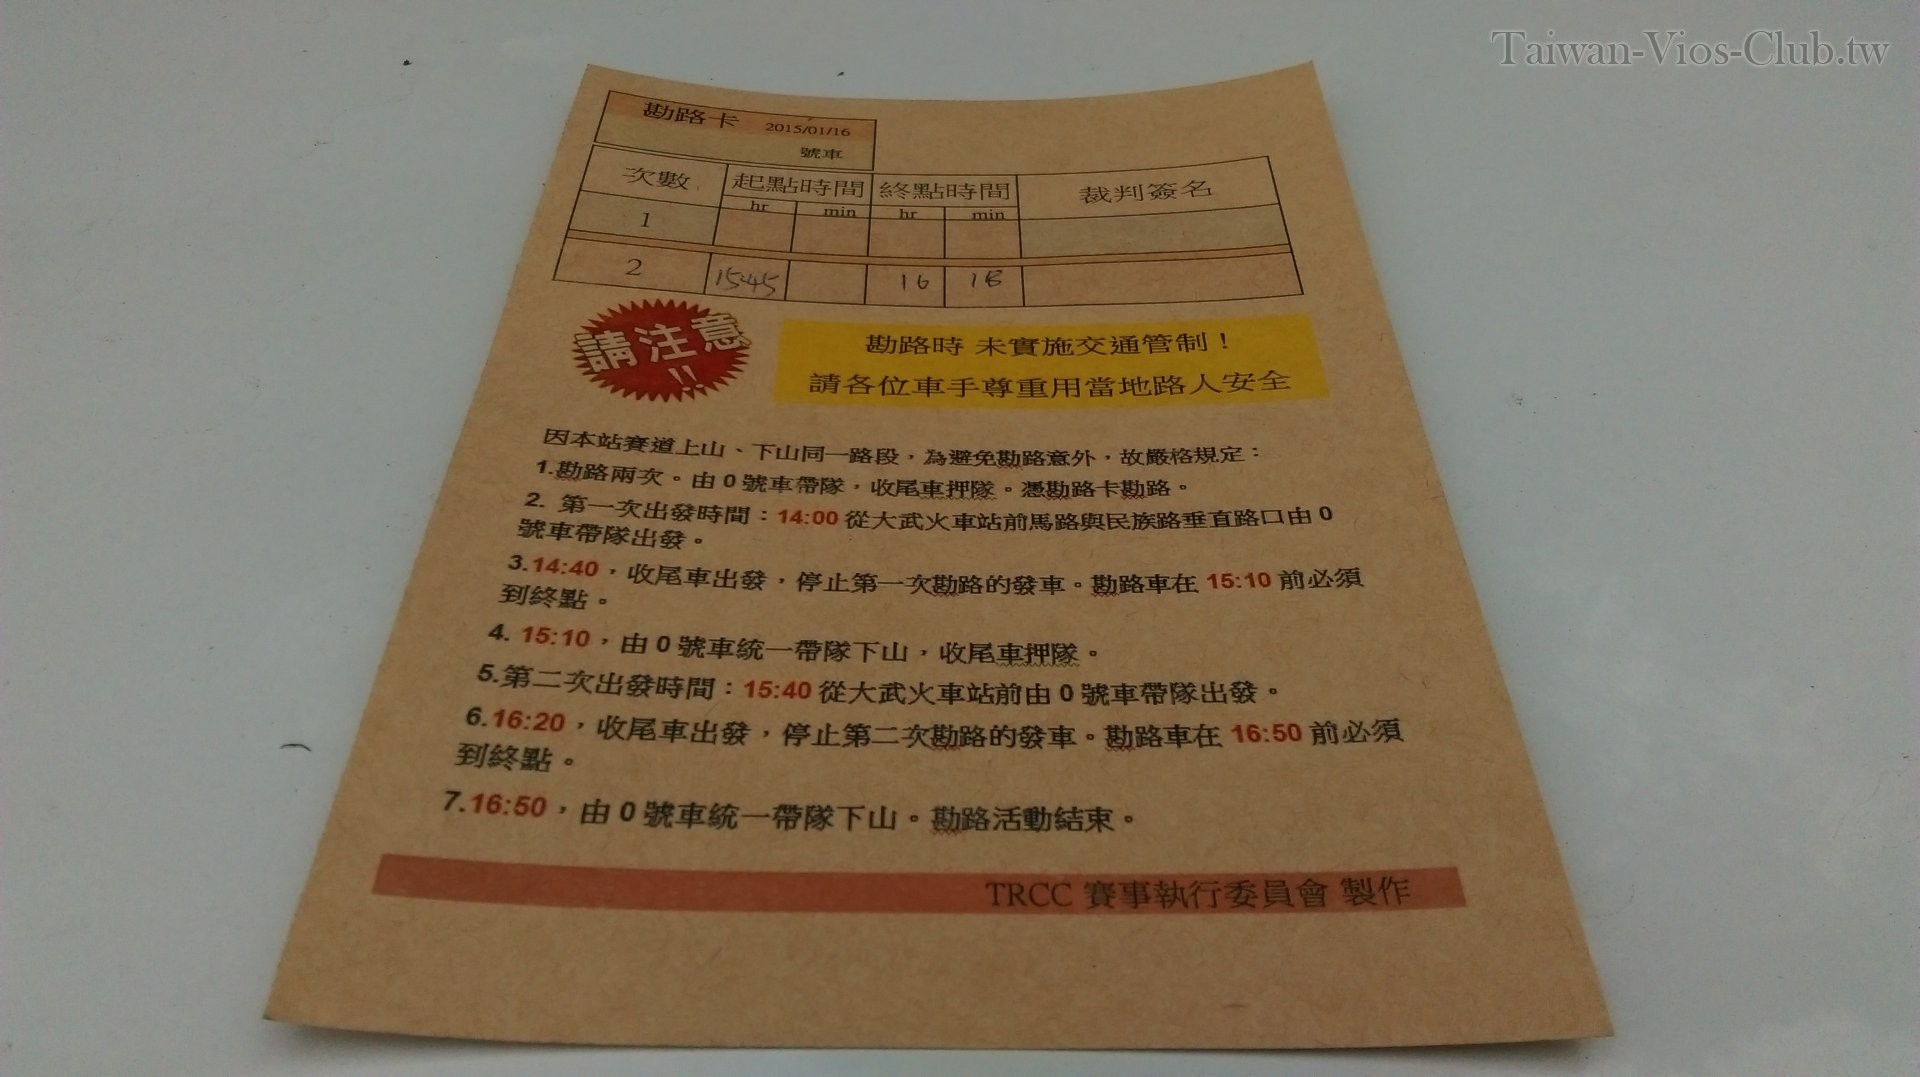 Taiwan-Vios-Club.tw
勘路卡 2015/01/16
號車
次數 起點時間 終點時間 裁判簽名
hr min hr min
1
2 15:45 16 18
請注意
!!
勘路時 未實施交通管制！
請各位車手尊重用當地路人安全
因本站賽道上山、下山同一路段，為避免勘路意外，故嚴格規定：
1.勘路兩次。由 0 號車帶隊，收尾車押隊。憑勘路卡勘路。
2. 第一次出發時間：14:00 從大武火車站前馬路與民族路垂直路口由 0
號車帶隊出發。
3.14:40，收尾車出發，停止第一次勘路的發車。勘路車在 15:10 前必須
到終點。
4. 15:10，由 0 號車統一帶隊下山，收尾車押隊。
5.第二次出發時間：15:40 從大武火車站前由 0 號車帶隊出發。
6.16:20，收尾車出發，停止第二次勘路的發車。勘路車在 16:50 前必須
到終點。
7.16:50，由 0 號車統一帶隊下山。勘路活動結束。
TRCC 賽事執行委員會 製作